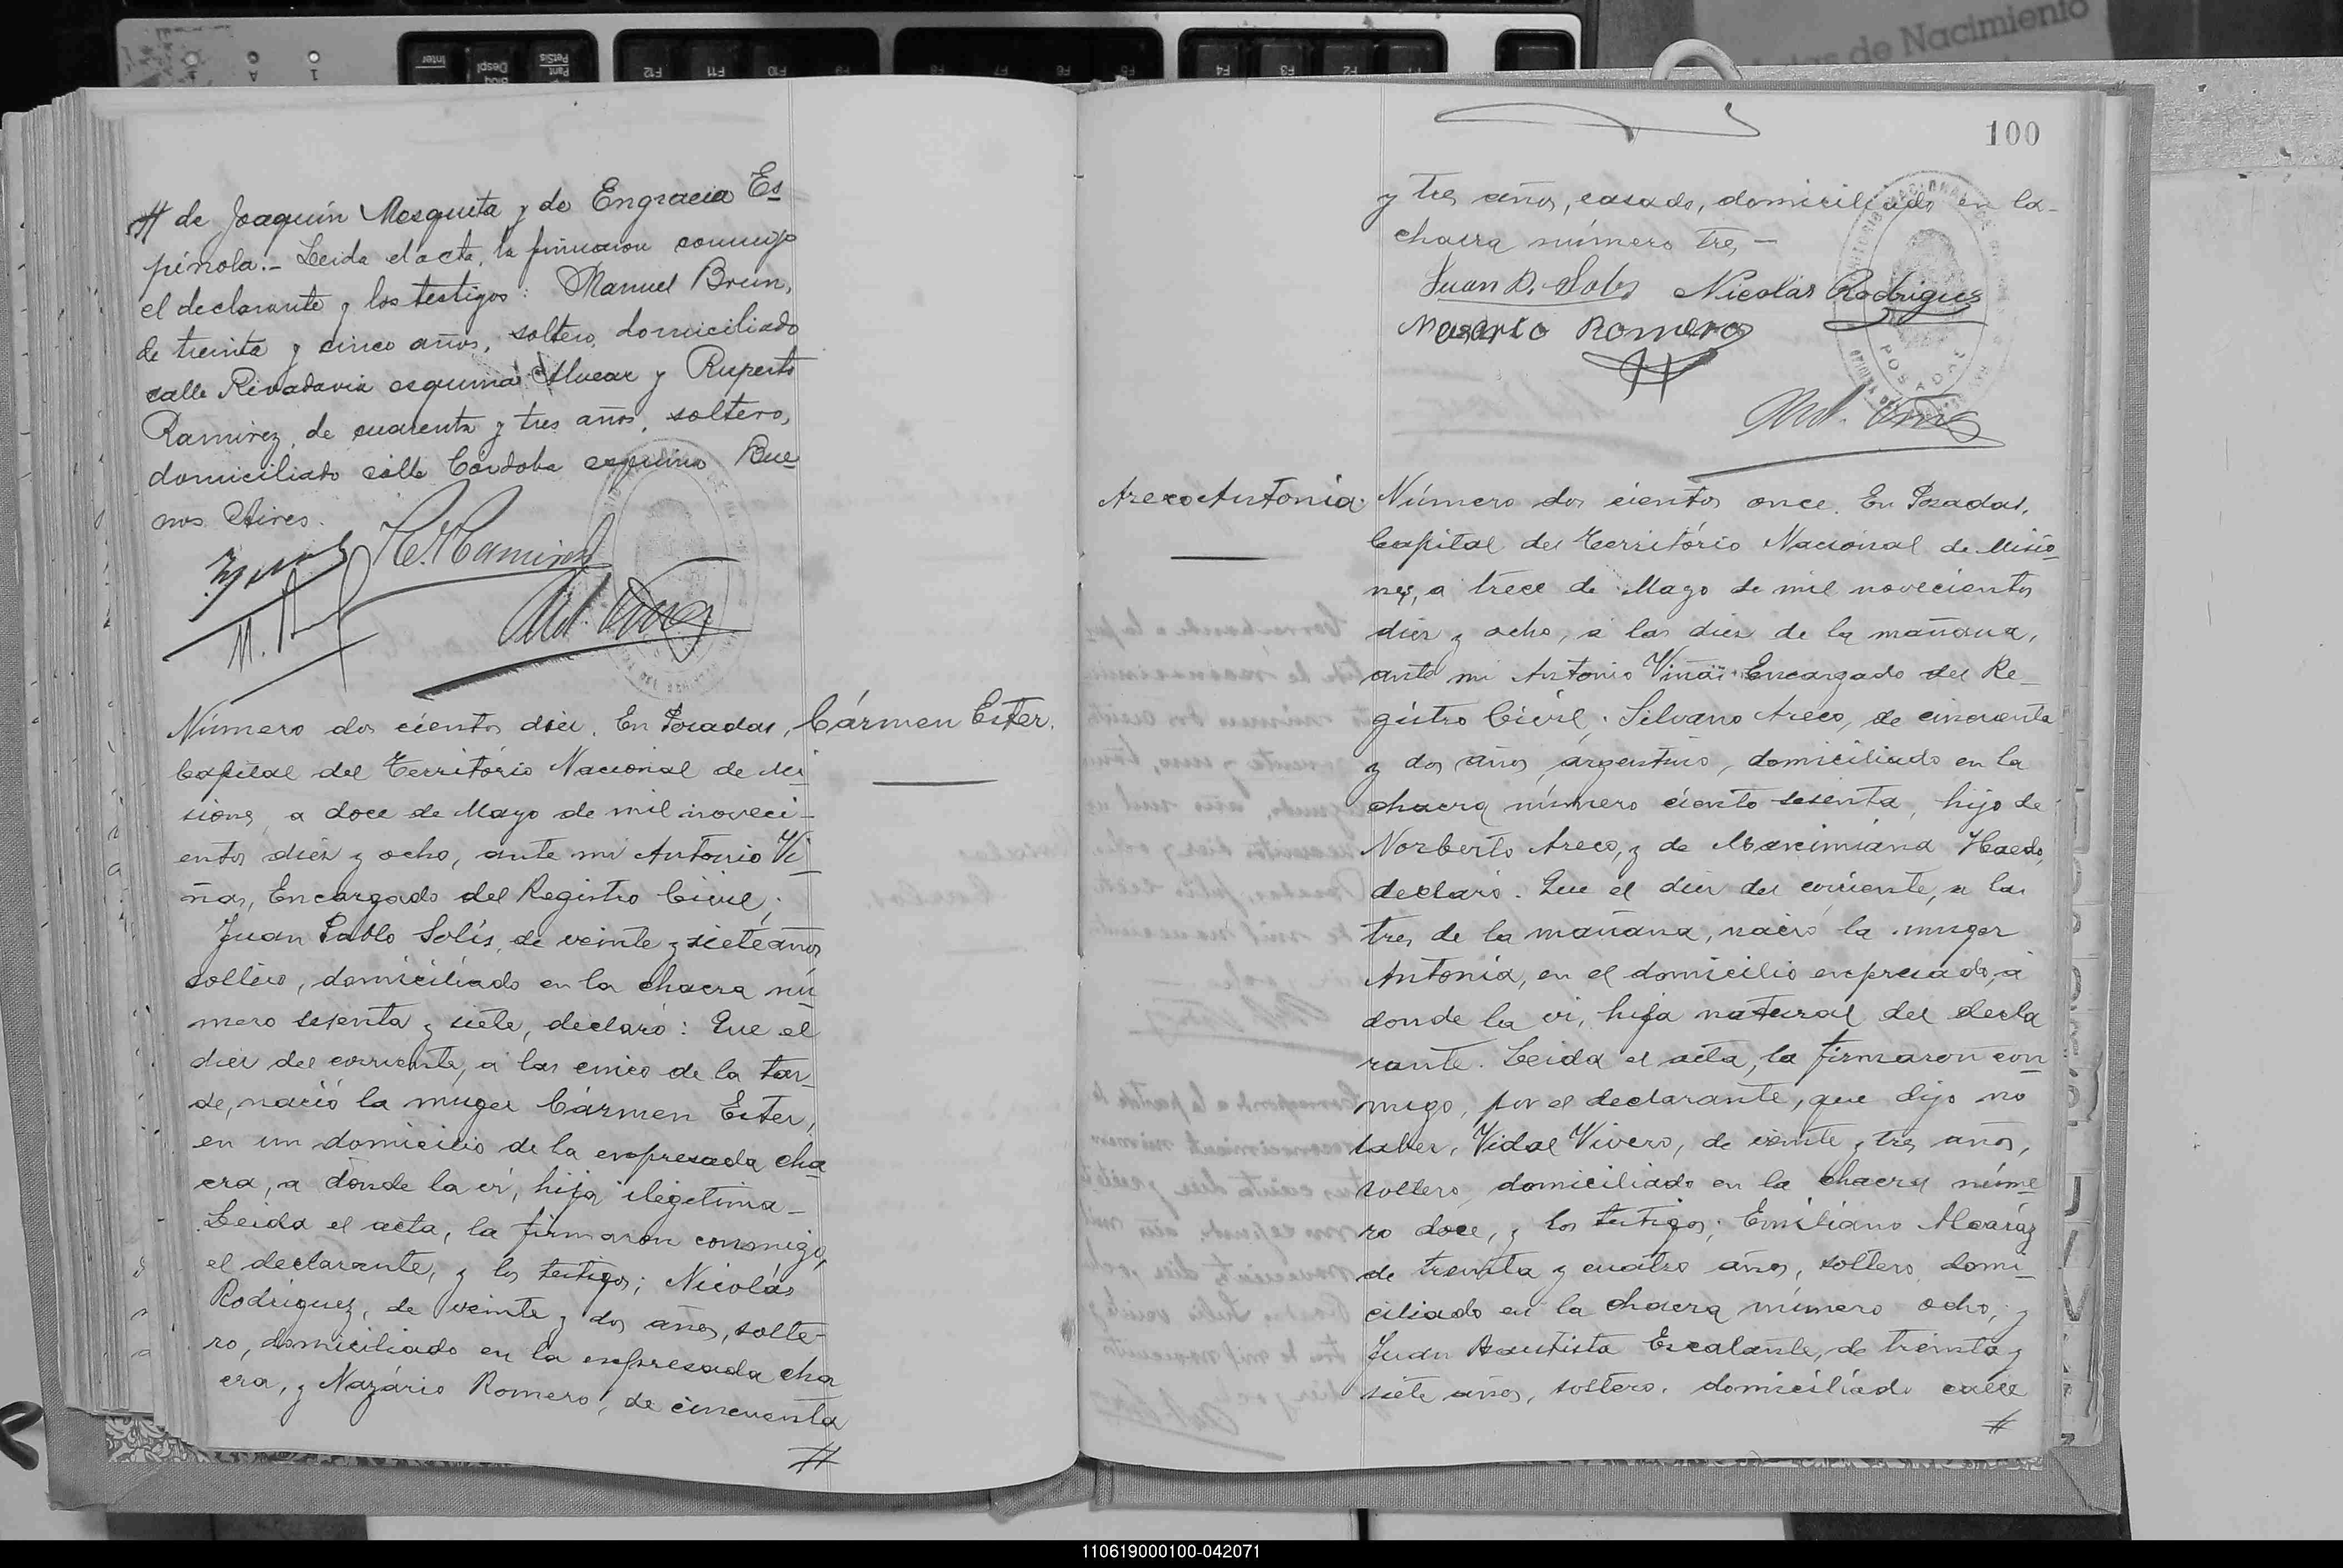 de Nacimiento
# de Joaquin Mosqueta y de Engracia Es
pinola.- Leida el acta, la firmaron conmigo
el declarante y los testigos: Manuel Brun,
de treinta y cinco años, soltero, domiciliado
calle Rivadavia esquina Alvear y Ruperto
Ramirez, de cuarenta y tres años, soltero,
domiciliado calle Córdoba esquina Bue
nos Aires.
R. Ramirez
Número dos cientos diez. En Posadas,
Cármen Ester.
Capital del Território Nacional de Mi
siones, a doce de Mayo de mil noveci-
entos diez y ocho, ante mi Antonio Vi
ñas, Encargado del Registro Civil;
Juan Pablo Solís, de veinte y siete años
soltero, domiciliado en la chacra nú
mero sesenta y siete, declaró: Que el
diez del corriente, a las cinco de la tar
de, nació la muger Cármen Ester,
en un domicilio de la expresada cha
cra, a donde la vi, hija ilegitima-
Leida el acta, la firmaron conmigo,
el declarante, y los testigos; Nicolás
Rodriguez, de veinte y dos años, solte-
ro, domiciliado en la expresada cha
cra, y Nazário Romero, de cincuenta
#
100
y tres años, casado, domiciliado en la
chacra número tres -
Juan P. Solis Nicolás Rodrigues
Nasario Romero
POSADAS
Ant. Viñas
Areco Antonia.
Número dos cientos once. En Posadas,
Capital del Território Nacional de Misio
nes, a trece de Mayo de mil novecientos
diez y ocho, a las diez de la mañana,
ante mi Antonio Viñas Encargado del Re-
gistro Civil; Silvano Areco, de cincuenta
y dos años, argentino, domiciliado en la
chacra número ciento sesenta, hijo de
Norberto Areco, y de Maximiana Haedo,
declaró: Que el diez del corriente, a las
tres de la mañana, nació la muger
Antonia, en el domicilio expresado, a
donde la vi, hija natural del decla
rante. Leida el acta, la firmaron con
migo, por el declarante, que dijo no
saber, Vidal Vivero, de veinte y tres años,
soltero, domiciliado en la chacra núme
ro doce, y los testigos; Emiliano Alcaráz
de treinta y cuatro años, soltero, domi-
ciliado en la chacra número ocho, y
Juan Bautista Escalante, de treinta y
siete años, soltero, domiciliado calle
#
110619000100-042071